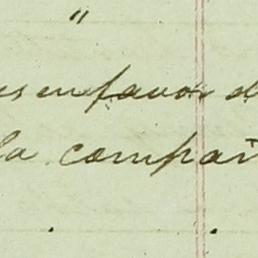 "
es en favor d
la compañ